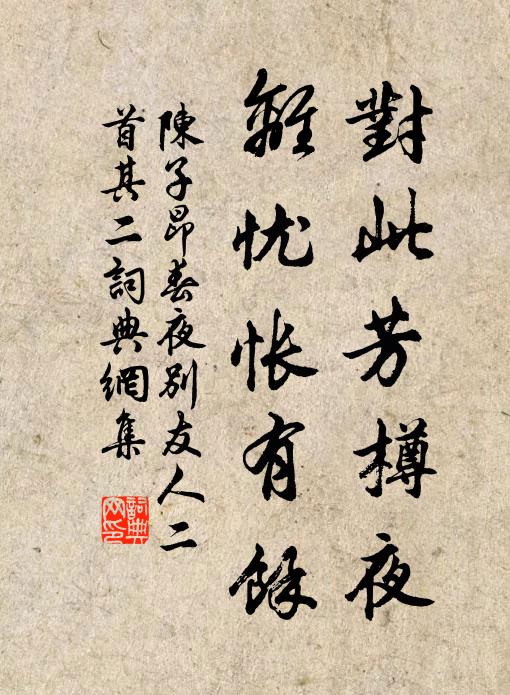 對此芳樽夜
離忧怅有餘
陳子昂春夜别友人二
首其二詞典網集
詞典
网印